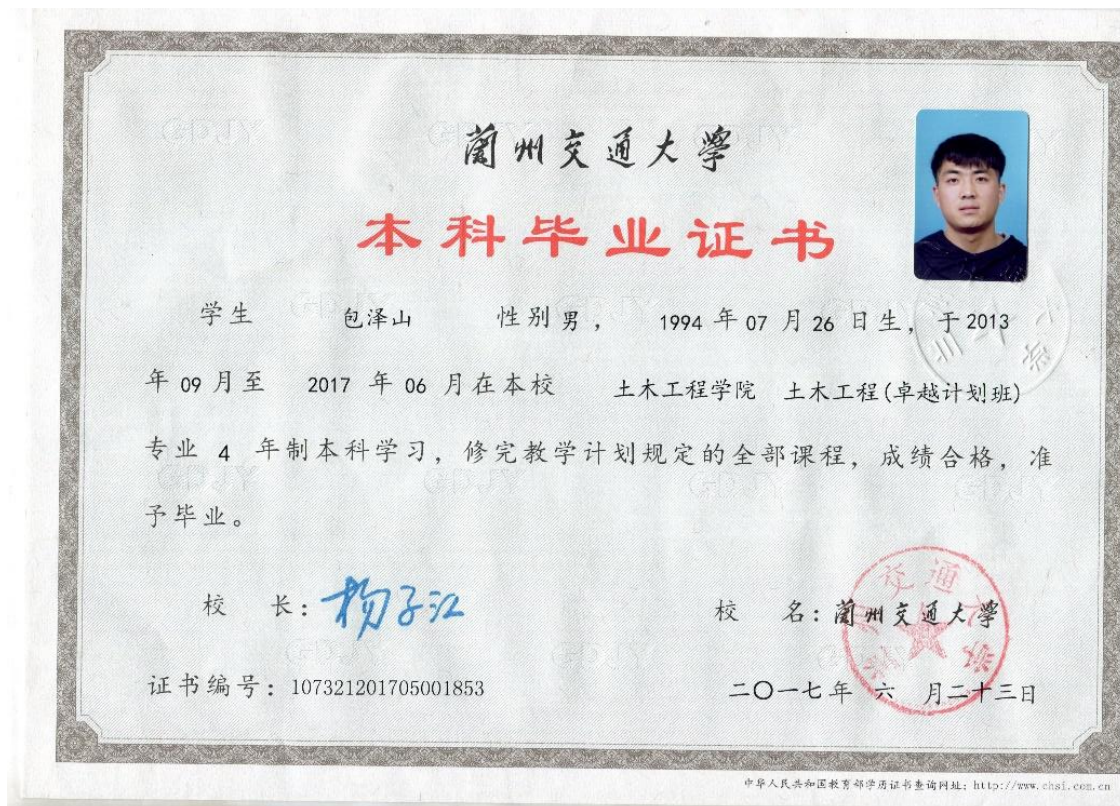 蘭州交通大學
本科毕业证书
学生 包泽山 性别男， 1994 年 07 月 26 日生，于 2013
年 09 月至 2017 年 06 月在本校 土木工程学院 土木工程(卓越计划班)
专业 4 年制本科学习，修完教学计划规定的全部课程，成绩合格，准
予毕业。
校 长：杨子江
校 名：蘭州交通大學
证书编号：107321201705001853
二〇一七年 六 月二十三日
中华人民共和国教育部学历证书查询网址：http://www.chsi.com.cn